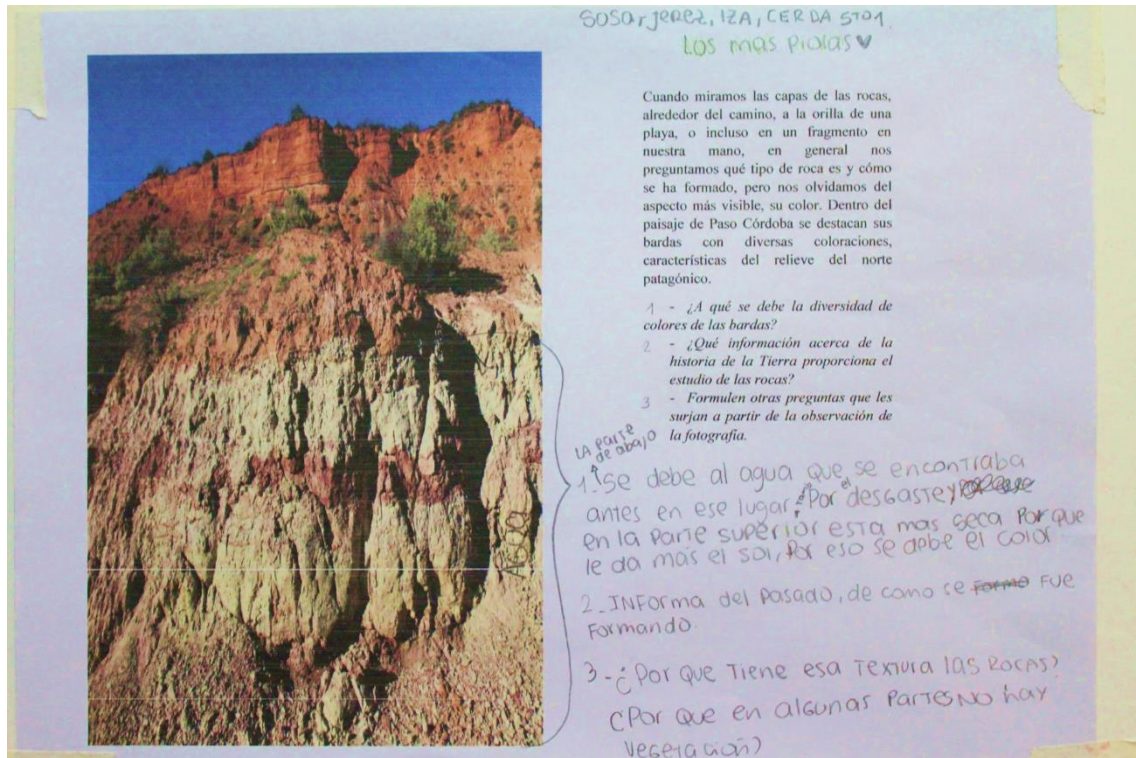 SOSA, JEREZ, IZA, CERDA 5TO1.
LOS mas PIOLAS
Cuando miramos las capas de las rocas,
alrededor del camino, a la orilla de una
playa, o incluso en un fragmento en
nuestra mano, en general nos
preguntamos qué tipo de roca es y cómo
se ha formado, pero nos olvidamos del
aspecto más visible, su color. Dentro del
paisaje de Paso Córdoba se destacan sus
bardas con diversas coloraciones,
características del relieve del norte
patagónico.
1 - ¿A qué se debe la diversidad de
colores de las bardas?
2 - ¿Qué información acerca de la
historia de la Tierra proporciona el
estudio de las rocas?
3 - Formulen otras preguntas que les
surjan a partir de la observación de
la fotografía.
LA parte
de abajo
1. Se debe al agua que se encontraba
antes en ese lugar, Por el desgaste y
en la parte superior esta mas seca Por que
le da mas el sol, Por eso se debe el color
AGUA
2_INForma del Pasado, de como se Formo FUE
Formando.
3-¿Por que Tiene esa Textura las Rocas?
¿Por que en algunas Partes NO hay
Vegetación?